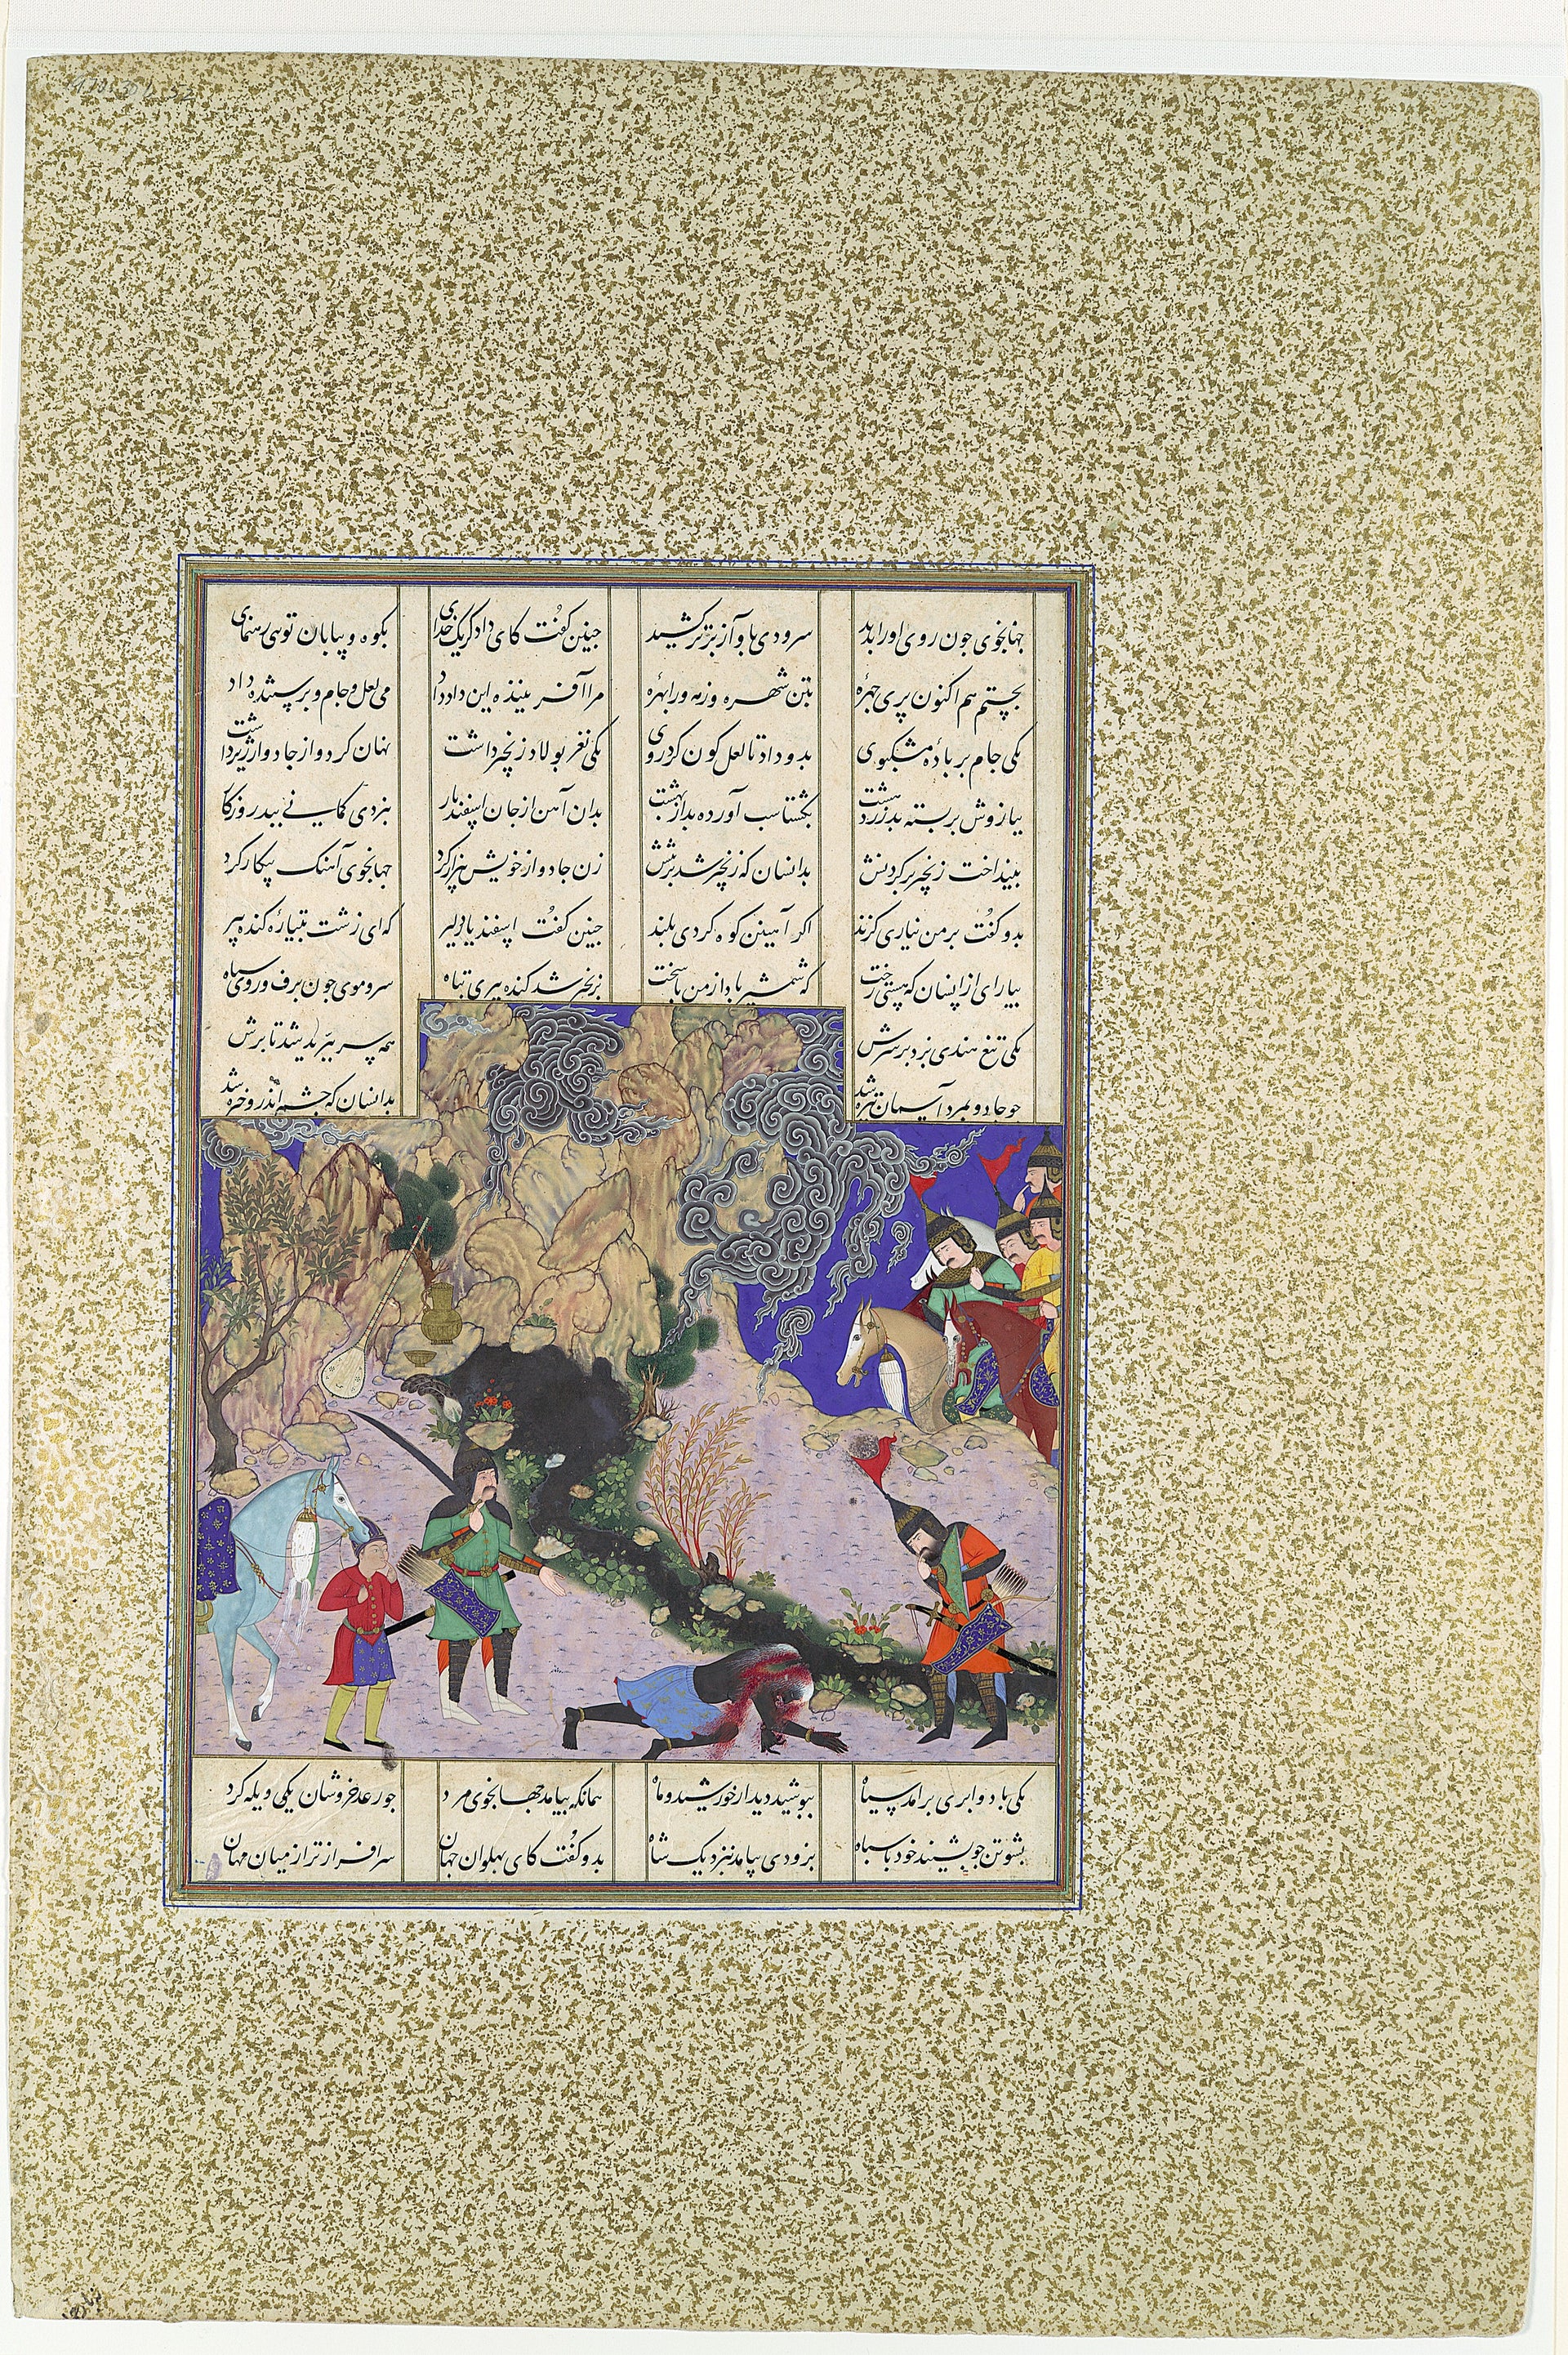 جهانجوی چون روی او را بدید سرودی بآواز برتر کشید چنین گفت کای دادگر یک خدای بکوه و بیابان تویی رهنمای
بجستم هم اکنون پری چهره بتن شهره وزمه ورا بهره مرا آفریننده این داد داد می لعل و جام و پرستنده داد
یکی جام پر بادهٔ مشکبوی بدو داد تا لعل گون کرد روی یکی نغز پولاد زنجیر داشت نهان کرده از جادو آژیر داشت
ببازوش بر بسته بد زردهشت بگشتاسب آورده بد از بهشت بدان آهن از جان اسفندیار نبردی گمانی ببد روزگار
بینداخت زنجیر بر گردنش بدانسان که زنجیر شد بر تنش زن جادو از خویش شیر کرد جهانجوی آهنگ پیکار کرد
بدو گفت بر من نیاری گزند اگر آهنین کوه کردی بلند چنین گفت اسفندیار دلیر که ای زشت پتیاره گنده پیر
بیارای ازانسان که هستی رخت که شمشیر باید از من پاسخت بزنجیر شد گنده پیری تباه سر و موی چون برف و روی سیاه
یکی تیغ هندی بزد بر سرش همه سر ببرید شد تا برش
چو جادو بمرد آسمان تیره شد بدانسان که چشم اندرو خیره شد
یکی باد و ابری برآمد سیاه بپوشید دیدار خورشید و ماه همانگه بیامد جهانجوی مرد چو رعد خروشان یکی ویله کرد
پشوتن چو بشنید خود با سپاه بزودی بیامد بنزدیک شاه بدو گفت کای پهلوان جهان سرافرازتر از میان مهان